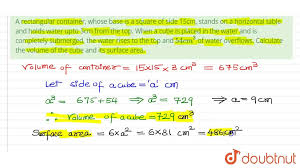 A rectangular container, whose base is a square of side 15cm, stands on a horizontal
table and holds water upto 3cm from the top. When a cube is placed in the water and is
completely submerged, the water rises to the top and 54cm³ of water overflows. Calculate
the volume of the cube and its surface area.
Volume of container = 15×15×3 cm³ = 675cm³
Let side of a cube = 'a' cm
a³ = 675+54 ⇒ a³ = 729 ⇒ a = 9cm
∴ Volume of a cube = 729 cm³
Surface area = 6×a² = 6×81 cm² = 486cm²
doubtnut